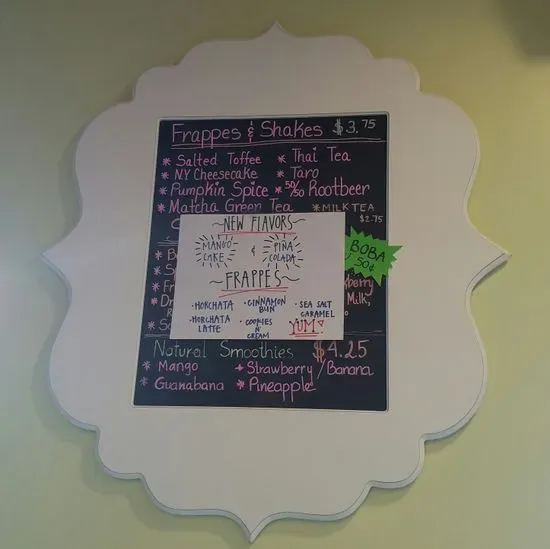 Frappes & Shakes $3.75
* Salted Toffee * Thai Tea
* N.Y Cheesecake * Taro
* Pumpkin Spice * 50/50 Rootbeer
* Matcha Green Tea * MILK TEA
$2.75
~NEW FLAVORS~
MANGO CAKE & PIÑA COLADA
~FRAPPES~
• HORCHATA • CINNAMON BUN • SEA SALT CARAMEL
• HORCHATA LATTE • COOKIES N' CREAM YUM!
BOBA
50¢
Milk,
Natural Smoothies $4.25
* Mango * Strawberry/Banana
* Guanabana * Pineapple